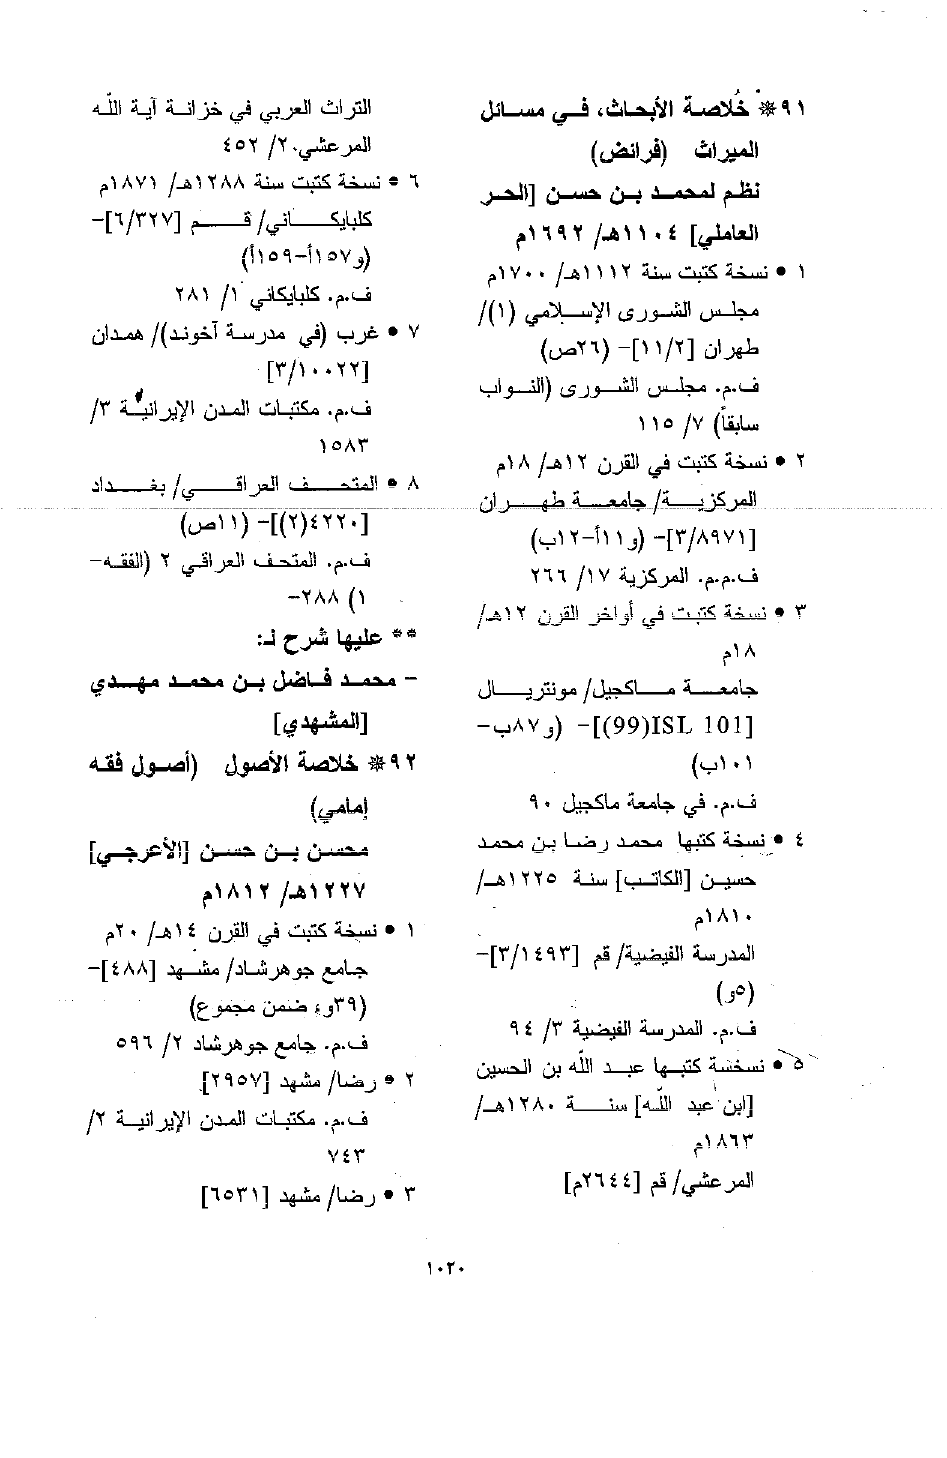 ٩١* خُلاصة الأبحاث، في مسائل
الميراث (فرائض)
نظم لمحمد بن حسن [الحر
العاملي] ١١٠٤هـ/ ١٦٩٢م
١ • نسخة كتبت سنة ١١١٢هـ/ ١٧٠٠م
مجلس الشورى الإسلامي (١)/
طهران [١١/٢]- (٢٦ص)
ف.م. مجلس الشورى (النواب
سابقاً) ٧/ ١١٥
٢ • نسخة كتبت في القرن ١٢هـ/ ١٨م
المركزية/ جامعة طهران
[٣/٨٩٧١]- (و١١أ-١٢ب)
ف.م.م. المركزية ١٧/ ٢٦٦
٣ • نسخة كتبت في أواخر القرن ١٢هـ/
١٨م
جامعة ماكجيل/ مونتريال
[ISL 101(99)]- (و٨٧ب-
١٠١ب)
ف.م. في جامعة ماكجيل ٩٠
٤ • نسخة كتبها محمد رضا بن محمد
حسين [الكاتب] سنة ١٢٢٥هـ/
١٨١٠م
المدرسة الفيضية/ قم [٣/١٤٩٣]-
(٥و)
ف.م. المدرسة الفيضية ٣/ ٩٤
٥ • نسخة كتبها عبد الله بن الحسين
[ابن عبد الله] سنة ١٢٨٠هـ/
١٨٦٣م
المرعشي/ قم [٢٦٤٤م]
التراث العربي في خزانة آية الله
المرعشي ٢/ ٤٥٢
٦ • نسخة كتبت سنة ١٢٨٨هـ/ ١٨٧١م
كلبايكاني/ قم [٦/٣٢٧]-
(و١٥٧أ-١٥٩أ)
ف.م. كلبايكاني ١/ ٢٨١
٧ • غرب (في مدرسة آخوند)/ همدان
[٣/١٠٠٢٢]
ف.م. مكتبات المدن الإيرانية ٣/
١٥٨٣
٨ • المتحف العراقي/ بغداد
[٤٢٢٠(٢)]- (١١ص)
ف.م. المتحف العراقي ٢ (الفقه-
١) ٢٨٨-
** عليها شرح لـ:
- محمد فاضل بن محمد مهدي
[المشهدي]
٩٢* خلاصة الأصول (أصول فقه
إمامي)
محسن بن حسن [الأعرجي]
١٢٢٧هـ/ ١٨١٢م
١ • نسخة كتبت في القرن ١٤هـ/ ٢٠م
جامع جوهرشاد/ مشهد [٤٨٨]-
(٣٩و، ضمن مجموع)
ف.م. جامع جوهرشاد ٢/ ٥٩٦
٢ • رضا/ مشهد [٢٩٥٧]
ف.م. مكتبات المدن الإيرانية ٢/
٧٤٣
٣ • رضا/ مشهد [٦٥٣١]
١٠٢٠